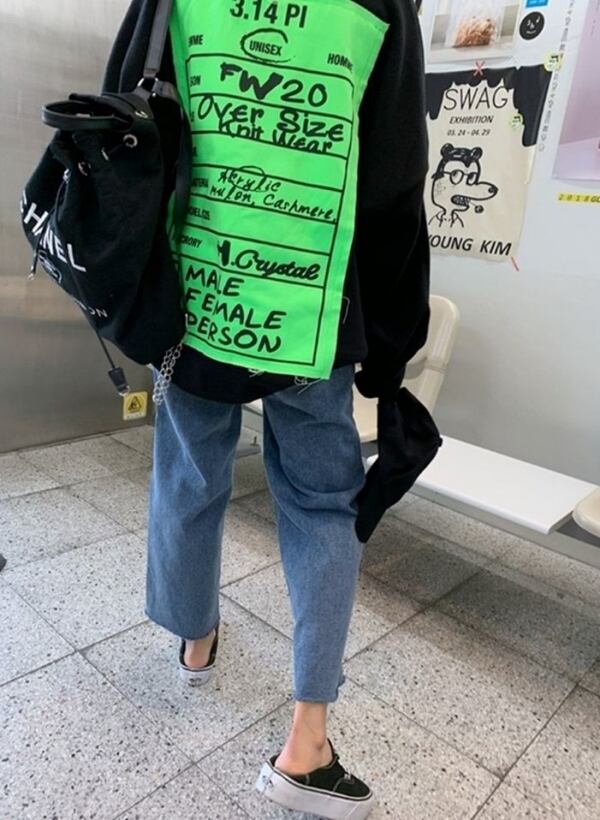 3.14 PI
UNISEX
FW20
Over Size
Knit Wear
Akrylic
Nylon, Cashmere
H.Crystal
MALE
FEMALE
PERSON
CHANEL
SWAG
EXHIBITION
03.24 - 04.29
YOUNG KIM